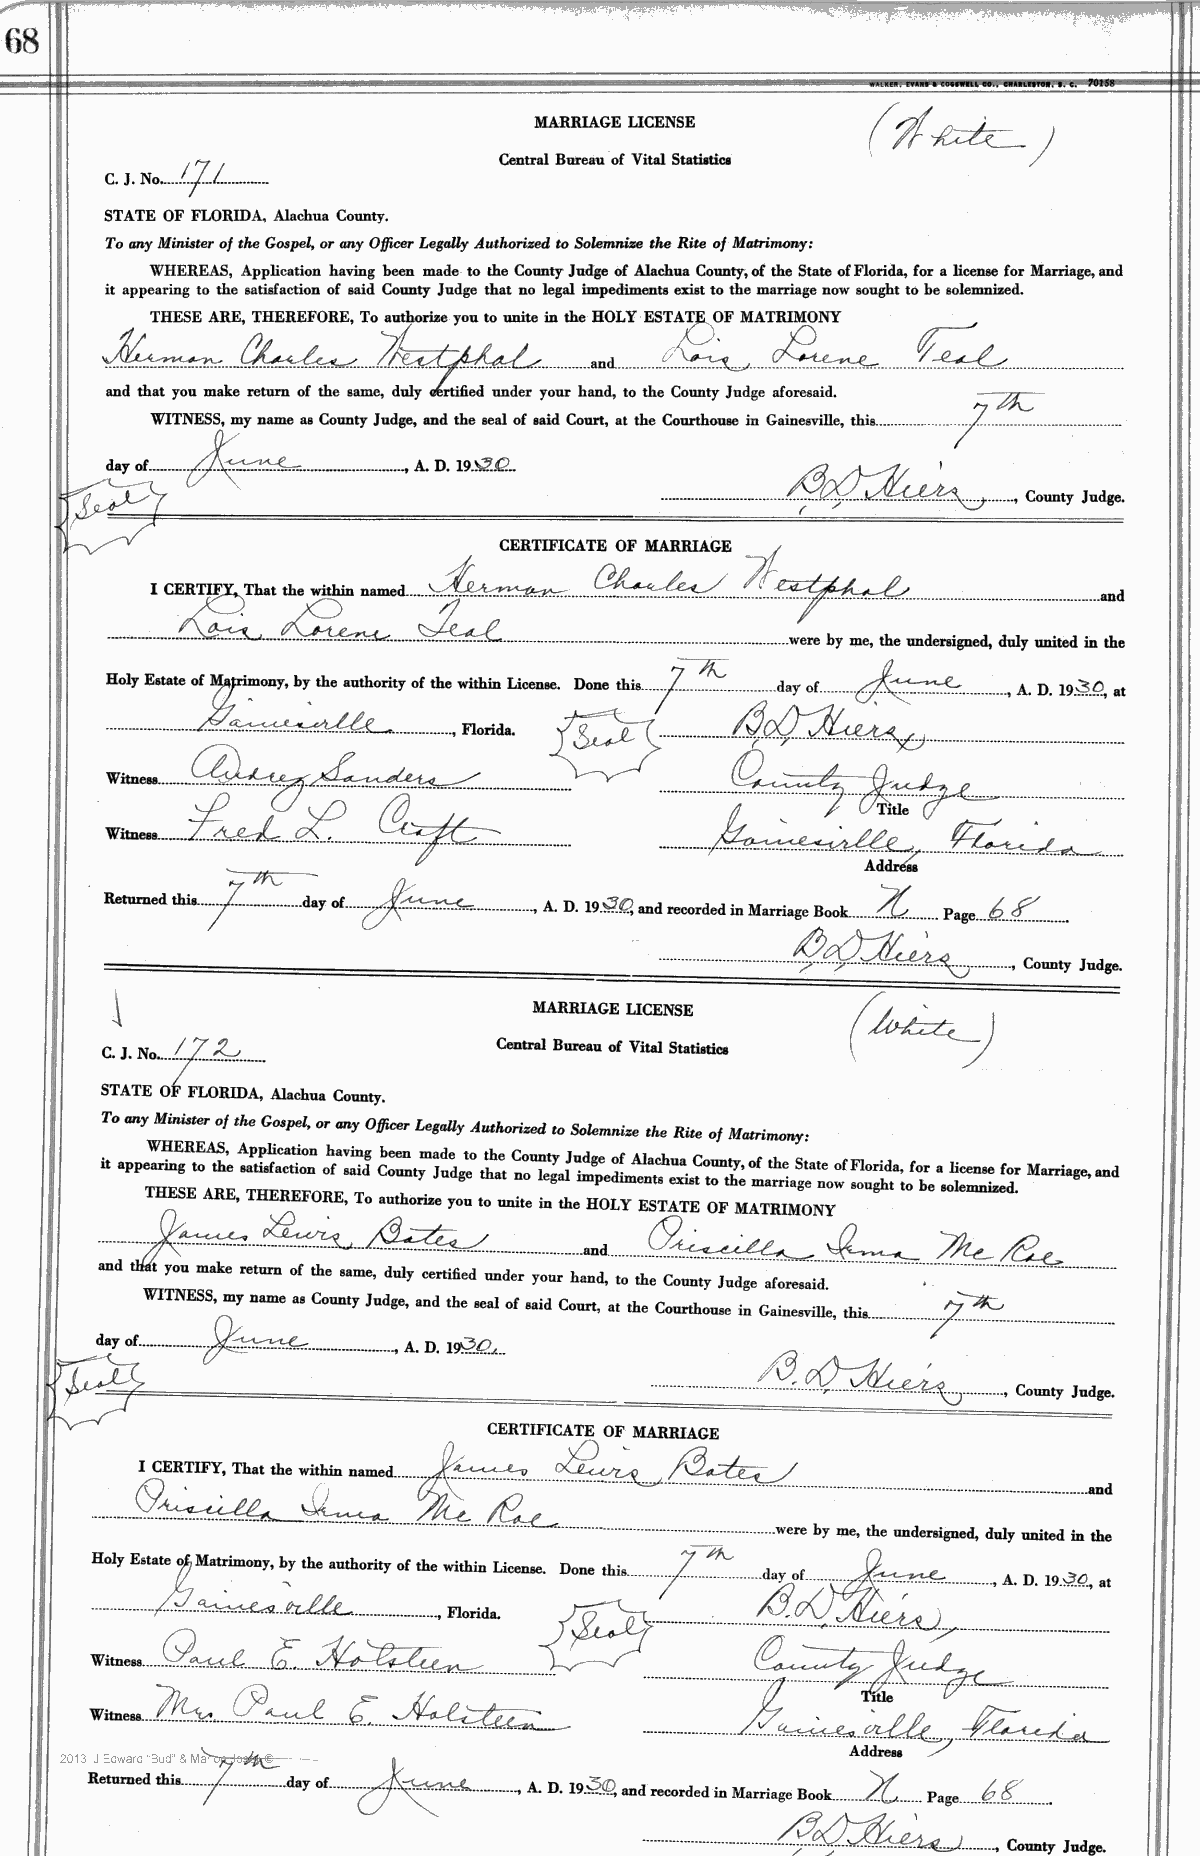 68
WALKER, EVANS & COGSWELL CO., CHARLESTON, S. C. 70158
MARRIAGE LICENSE
(White)
Central Bureau of Vital Statistics
C. J. No. 171
STATE OF FLORIDA, Alachua County.
To any Minister of the Gospel, or any Officer Legally Authorized to Solemnize the Rite of Matrimony:
WHEREAS, Application having been made to the County Judge of Alachua County, of the State of Florida, for a license for Marriage, and
it appearing to the satisfaction of said County Judge that no legal impediments exist to the marriage now sought to be solemnized.
THESE ARE, THEREFORE, To authorize you to unite in the HOLY ESTATE OF MATRIMONY
Herman Charles Westphal and Lois Lorene Teal
and that you make return of the same, duly certified under your hand, to the County Judge aforesaid.
WITNESS, my name as County Judge, and the seal of said Court, at the Courthouse in Gainesville, this 7th
day of June, A. D. 1930.
B. D. Hiers, County Judge.
Seal
CERTIFICATE OF MARRIAGE
I CERTIFY, That the within named Herman Charles Westphal and
Lois Lorene Teal were by me, the undersigned, duly united in the
Holy Estate of Matrimony, by the authority of the within License. Done this 7th day of June, A. D. 1930, at
Gainesville, Florida. Seal B. D. Hiers,
Witness Audrey Sanders County Judge
Title
Witness Fred L. Craft Gainesville, Florida
Address
Returned this 7th day of June, A. D. 1930, and recorded in Marriage Book N Page 68
B. D. Hiers, County Judge.
MARRIAGE LICENSE
(White)
Central Bureau of Vital Statistics
C. J. No. 172
STATE OF FLORIDA, Alachua County.
To any Minister of the Gospel, or any Officer Legally Authorized to Solemnize the Rite of Matrimony:
WHEREAS, Application having been made to the County Judge of Alachua County, of the State of Florida, for a license for Marriage, and
it appearing to the satisfaction of said County Judge that no legal impediments exist to the marriage now sought to be solemnized.
THESE ARE, THEREFORE, To authorize you to unite in the HOLY ESTATE OF MATRIMONY
James Lewis Bates and Priscilla Irma Mc Rae
and that you make return of the same, duly certified under your hand, to the County Judge aforesaid.
WITNESS, my name as County Judge, and the seal of said Court, at the Courthouse in Gainesville, this 7th
day of June, A. D. 1930.
B. D. Hiers, County Judge.
Seal
CERTIFICATE OF MARRIAGE
I CERTIFY, That the within named James Lewis Bates and
Priscilla Irma Mc Rae were by me, the undersigned, duly united in the
Holy Estate of Matrimony, by the authority of the within License. Done this 7th day of June, A. D. 1930, at
Gainesville, Florida. Seal B. D. Hiers,
Witness Paul E. Holsteen County Judge
Title
Witness Mrs. Paul E. Holsteen Gainesville, Florida
Address
2013 J Edward "Bud" &
Returned this 7th day of June, A. D. 1930, and recorded in Marriage Book N Page 68
B. D. Hiers, County Judge.